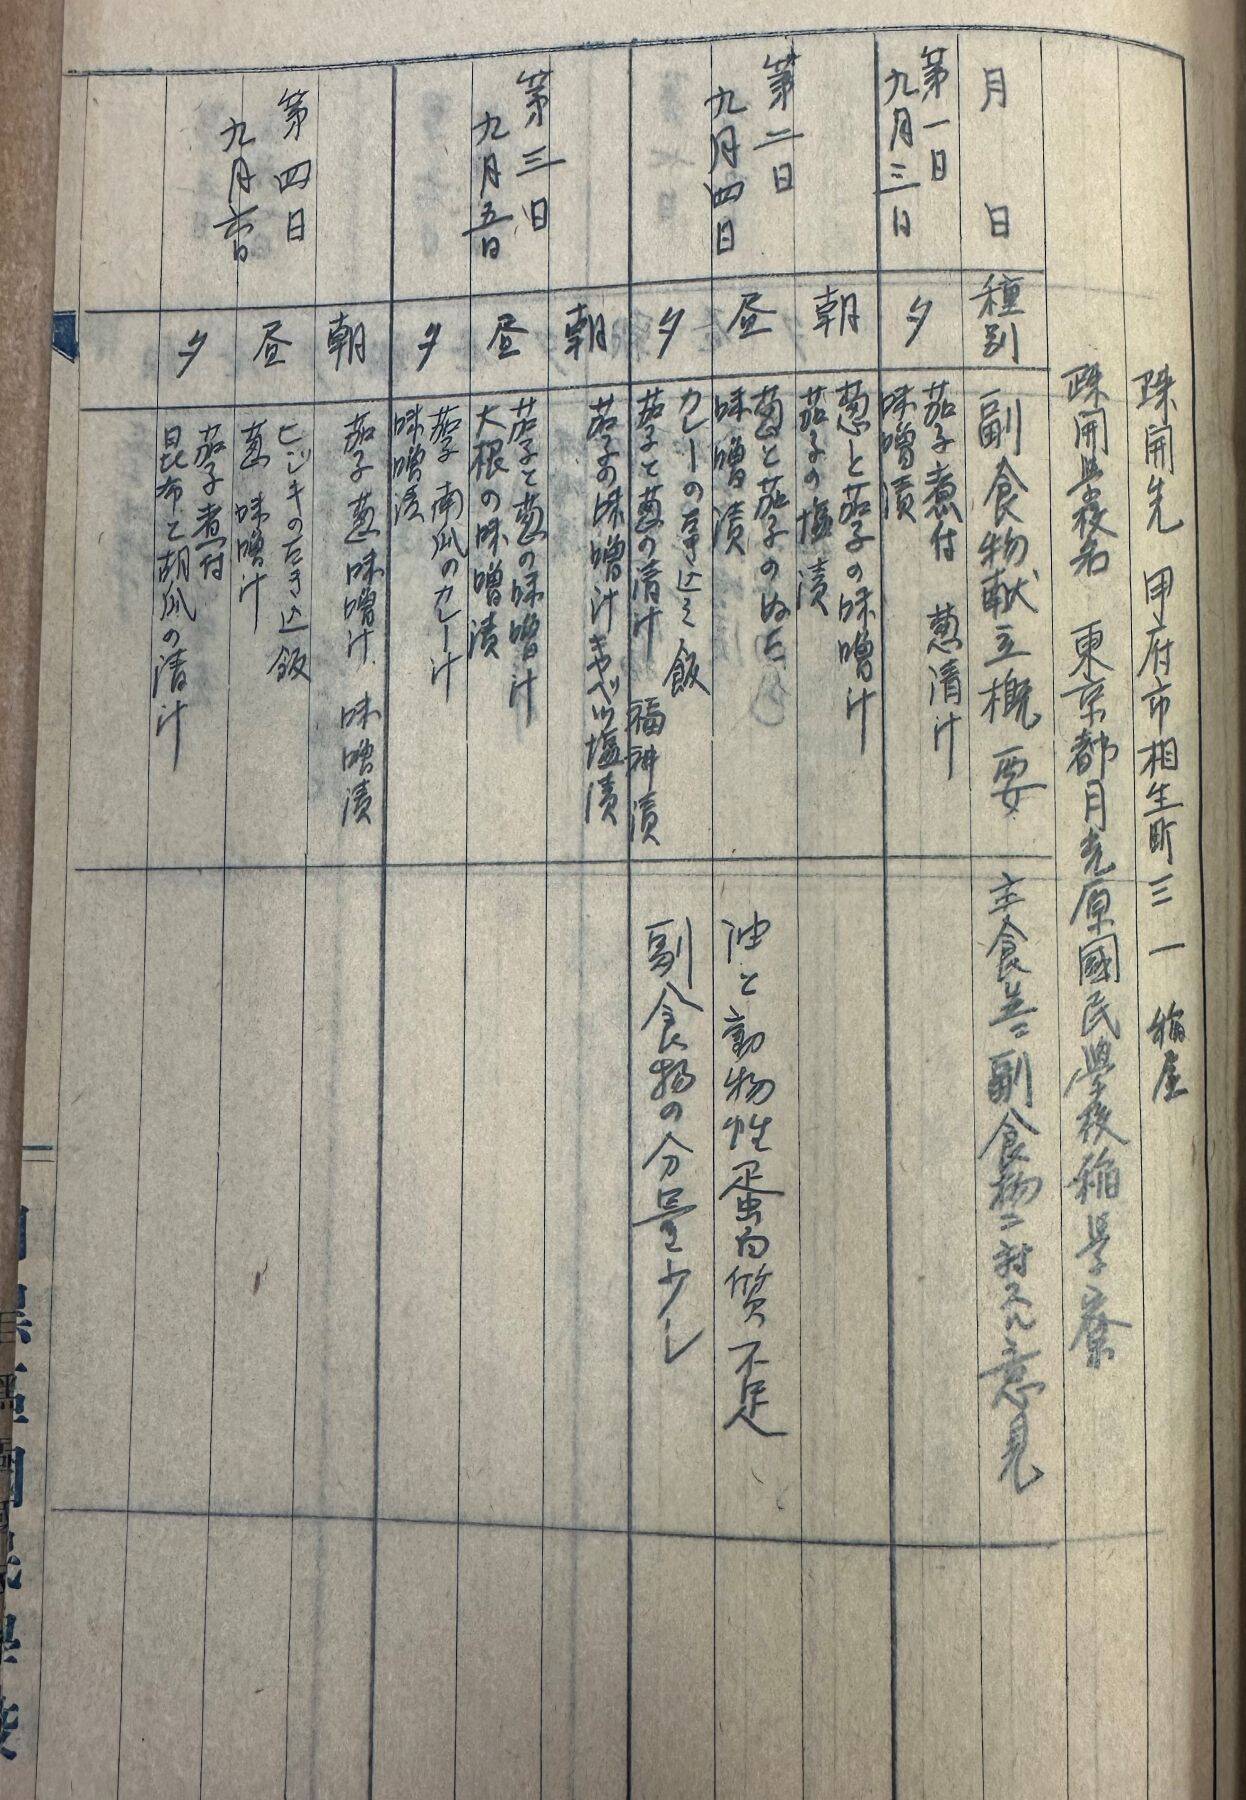 疎開先 甲府市相生町三一 稲屋
疎開學校名 東京都月光原國民學校稲學寮
月 日 種別 副食物献立概要 主食並副食物ニ対スル意見
第一日
九月三日
夕
茄子煮付 葱清汁
味噌漬
第二日
九月四日
朝
葱と茄子の味噌汁
茄子の塩漬
昼
葱と茄子のぬた
味噌漬
夕
カレーの炊き込ミ飯
茄子と葱の清汁 福神漬
油と動物性蛋白質不足
副食物の分量少し
第三日
九月五日
朝
茄子の味噌汁 キャベツ塩漬
昼
茄子と葱の味噌汁
大根の味噌漬
夕
茄子 南瓜のカレー汁
味噌漬
第四日
九月六日
朝
茄子 葱 味噌汁 味噌漬
昼
ヒジキのたき込飯
葱 味噌汁
夕
茄子煮付
昆布と胡瓜の清汁